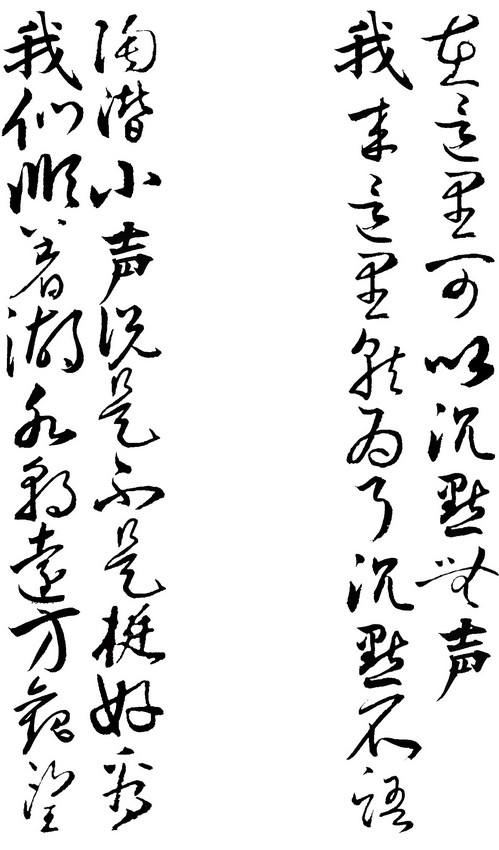 在这里可以沉默无声
我来这里就为了沉默不语
陶潜小声说是不是挺好看
我们顺着湖水朝远方观望